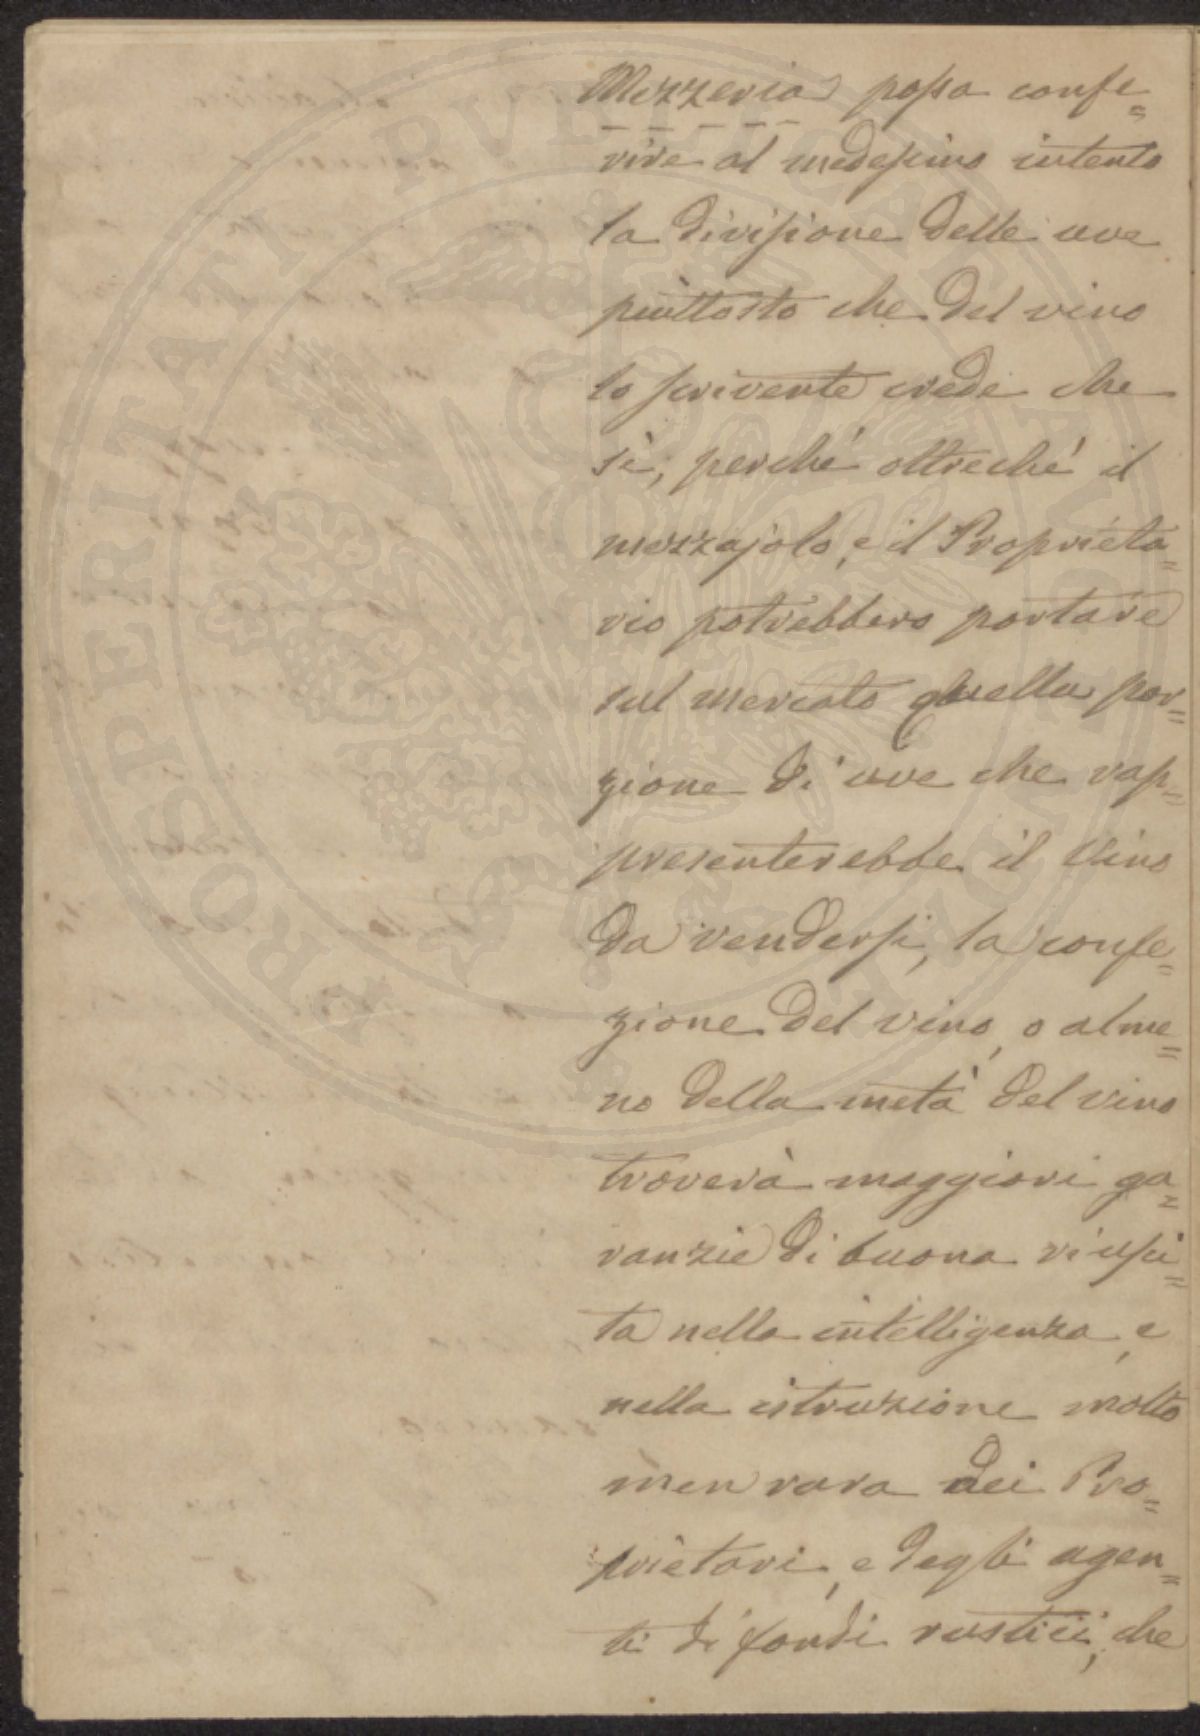 Mezzeria possa confe=
rire al medesimo intento
la divisione delle uve
piuttosto che del vino
lo scrivente crede che
sì, perché oltreché il
mezzajolo, e il Proprieta=
rio potrebbero portare
sul mercato quella por=
zione di uve che rap=
presenterebbe il vino
da vendersi, la confe=
zione del vino, o alme=
no della metà del vino
troverà maggiori ga=
ranzie di buona riusci=
ta nella intelligenza, e
nella istruzione molto
men rara dei Pro=
prietari, e degli agen=
ti di fondi rustici, che
PROSPERITATI PVBLICAE AVGENDAE